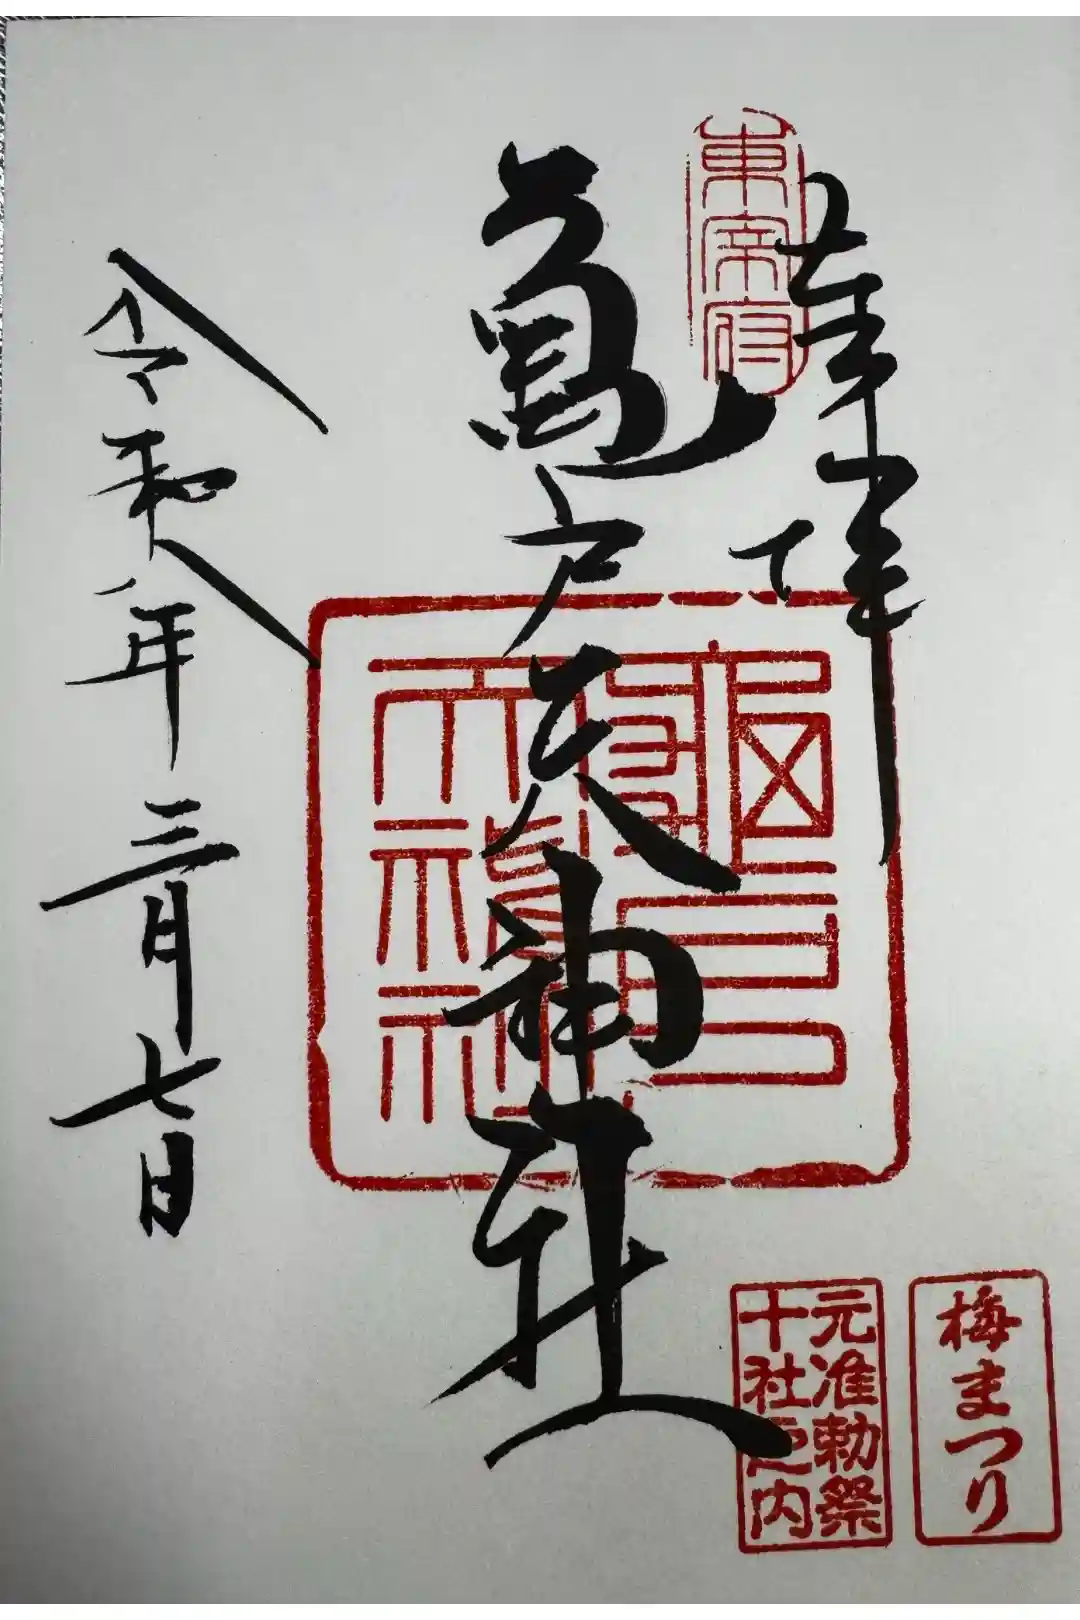 奉拝
東宰府
龜戸天神社
令和八年三月七日
梅まつり
元准勅祭
十社之内